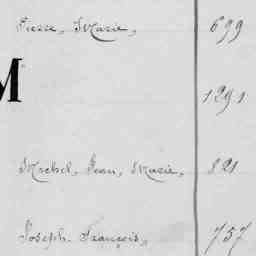 Pierre, Marie, 699
M
1291
Michel, Jean, Marie, 821
Joseph François, 757